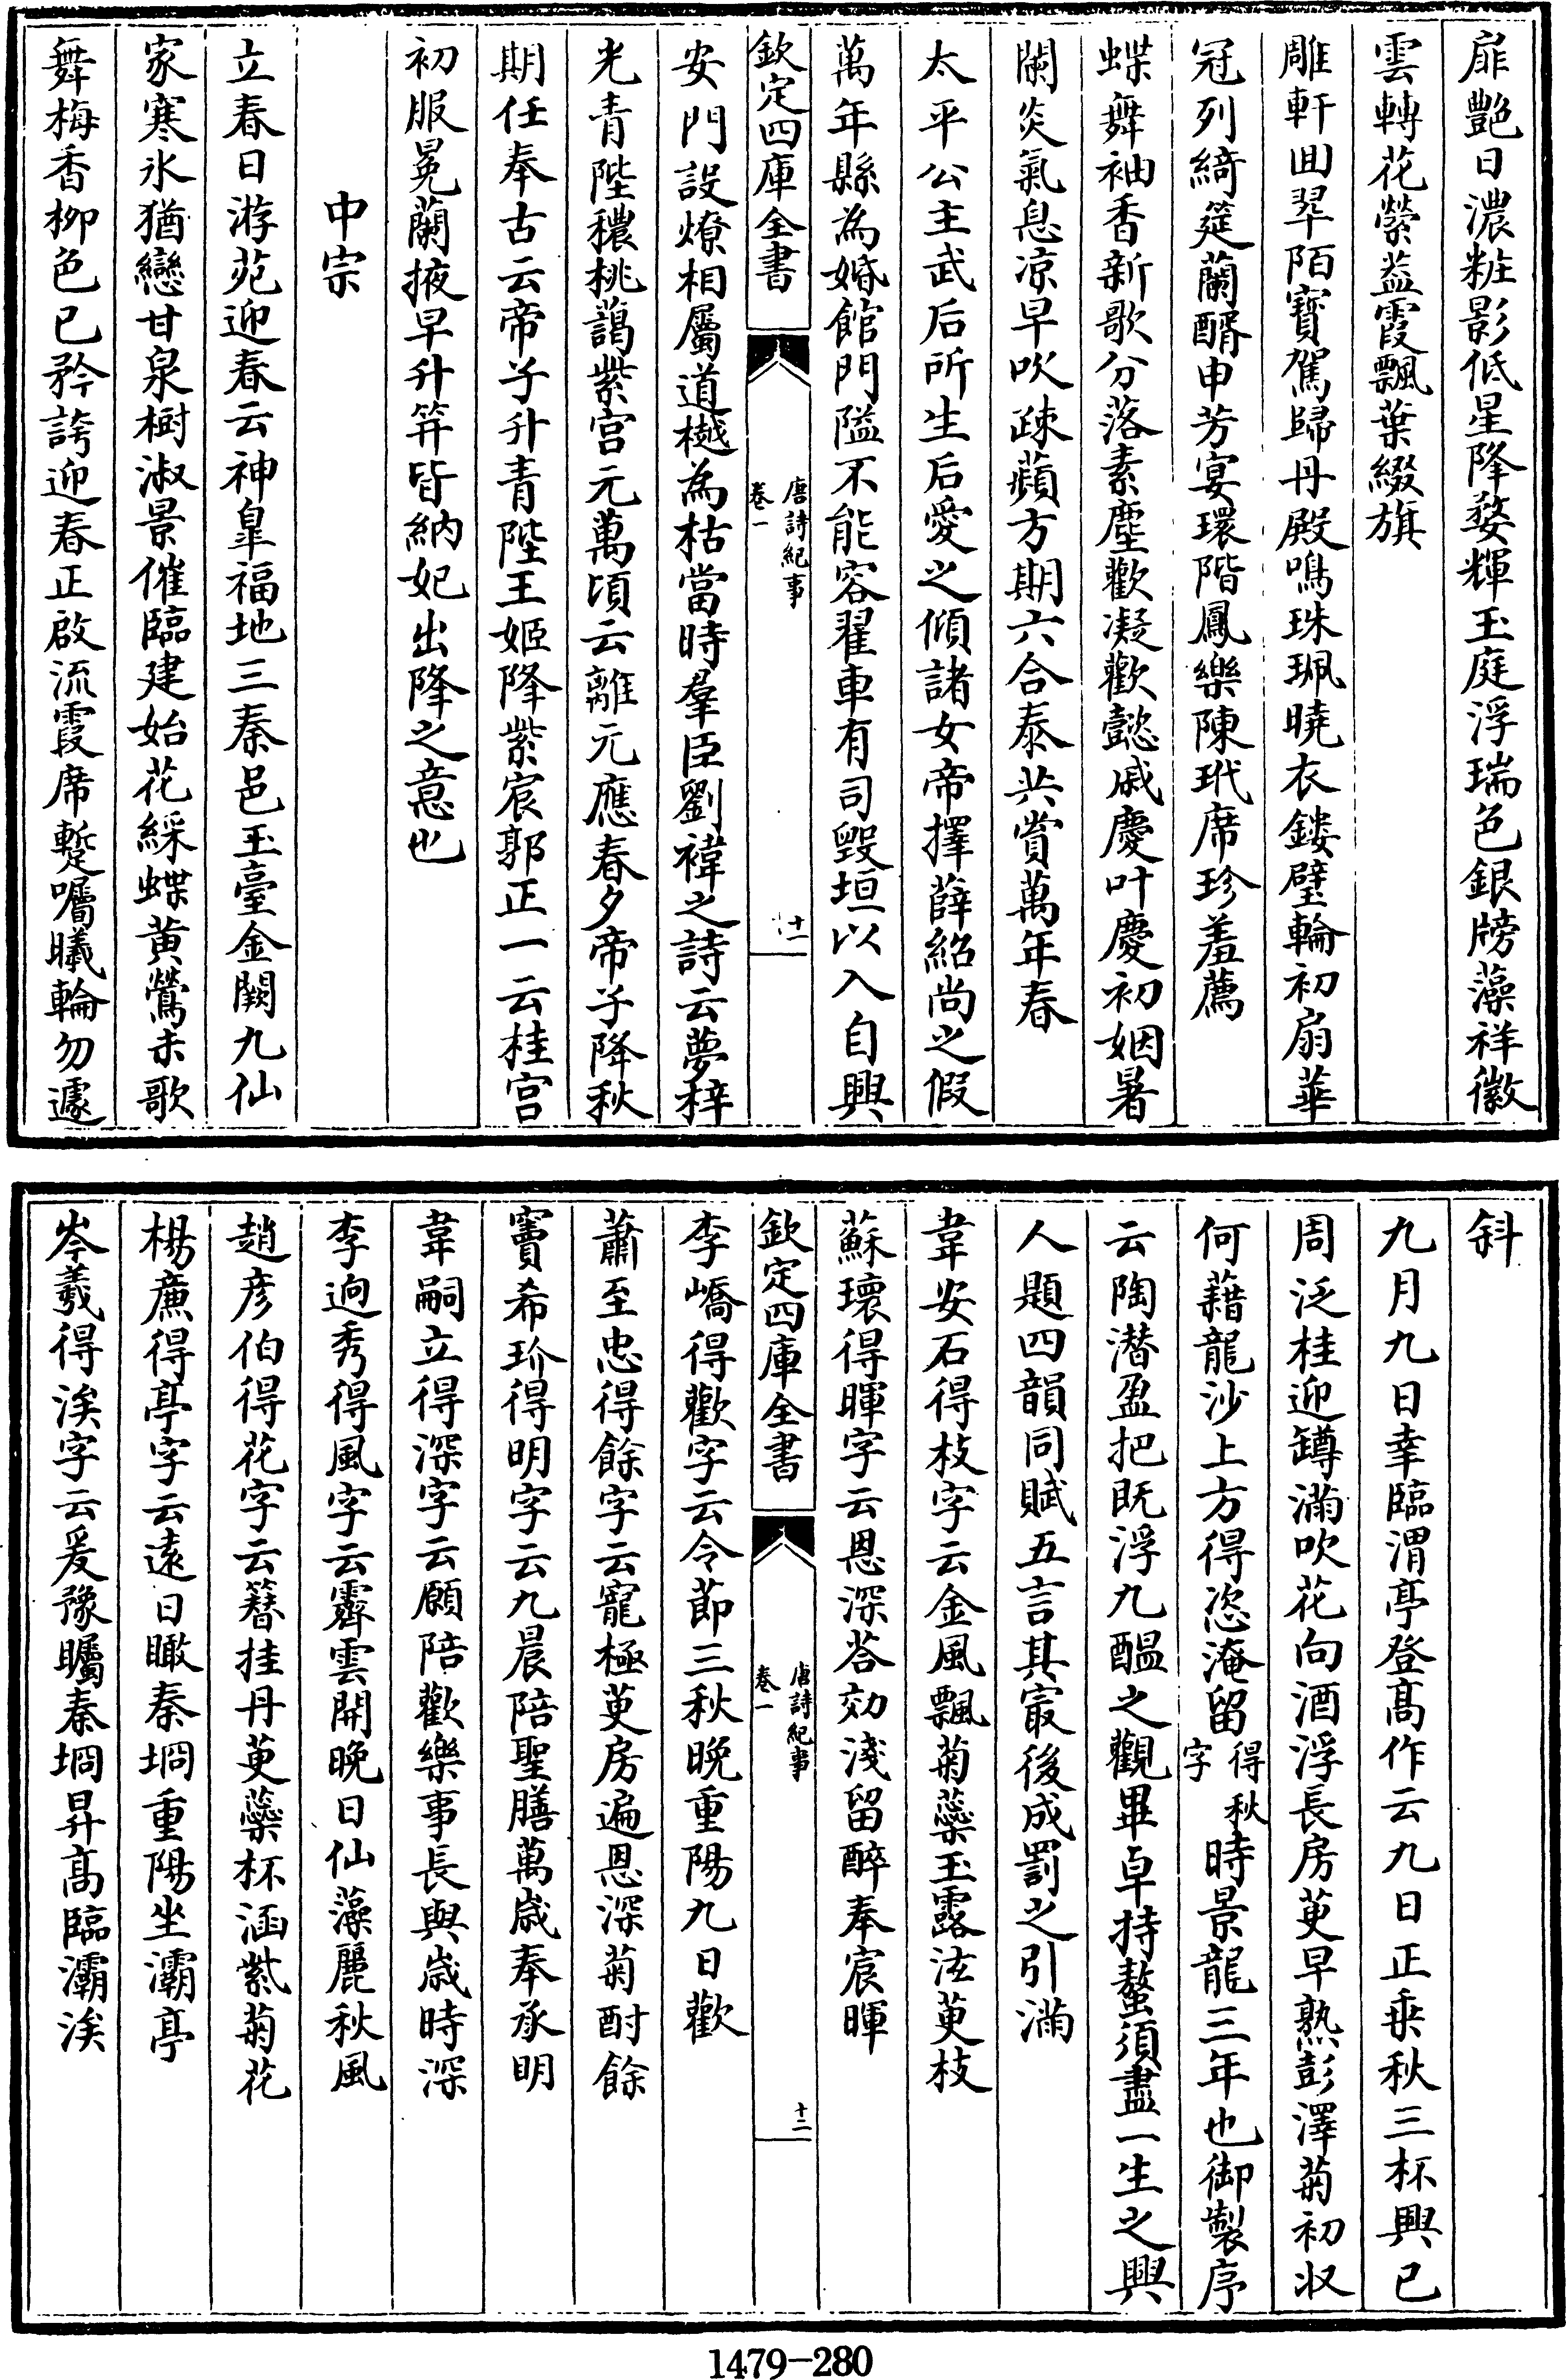 扉艷日濃粧影低星降婺輝玉庭浮瑞色銀牓藻祥徽
雲轉花縈葢霞飄葉綴旗
雕軒回翠陌寳駕歸丹殿鳴珠珮曉衣鏤璧輪初扇華
冠列綺筵蘭醑申芳宴環階鳳樂陳玳席珍羞薦
蝶舞袖香新歌分落素塵歡凝歡懿戚慶叶慶初姻暑
闌炎氣息凉早吹疎蘋方期六合泰共賞萬年春
太平公主武后所生后愛之傾諸女帝擇薛紹尚之假
萬年縣為婚館門隘不能容翟車有司毁垣以入自興
欽定四庫全書
唐詩紀事
卷一
十一
安門設燎相屬道樾為枯當時羣臣劉褘之詩云夢梓
光青陛穠桃藹紫宫元萬頃云離元應春夕帝子降秋
期任奉古云帝子升青陛王姬降紫宸郭正一云桂宫
初服冕蘭掖早升笄皆納妃出降之意也
中宗
立春日游苑迎春云神皐福地三秦邑玉臺金闕九仙
家寒氷猶戀甘泉樹淑景催臨建始花綵蝶黄鶯未歌
舞梅香柳色已矜誇迎春正啟流霞席蹔囑曦輪勿遽
斜
九月九日幸臨渭亭登髙作云九日正乗秋三杯興已
周泛桂迎罇滿吹花向酒浮長房萸早熟彭澤菊初收
何藉龍沙上方得恣淹留得秋字時景龍三年也御製序
云陶潜盈把既浮九醖之觀畢卓持螯須盡一生之興
人題四韻同賦五言其最後成罰之引滿
韋安石得枝字云金風飄菊蘂玉露泫萸枝
蘇瓌得暉字云恩深荅効淺留醉奉宸暉
欽定四庫全書
唐詩紀事
卷一
十二
李嶠得歡字云令節三秋晚重陽九日歡
蕭至忠得餘字云寵極萸房遍恩深菊酎餘
竇希玠得明字云九晨陪聖膳萬歳奉承明
韋嗣立得深字云願陪歡樂事長與歳時深
李逈秀得風字云霽雲開晚日仙藻麗秋風
趙彦伯得花字云簪挂丹萸蘂杯涵紫菊花
楊廉得亭字云遠日瞰秦坰重陽坐灞亭
岑羲得涘字云爰豫矚秦坰昇髙臨灞涘
1479-280